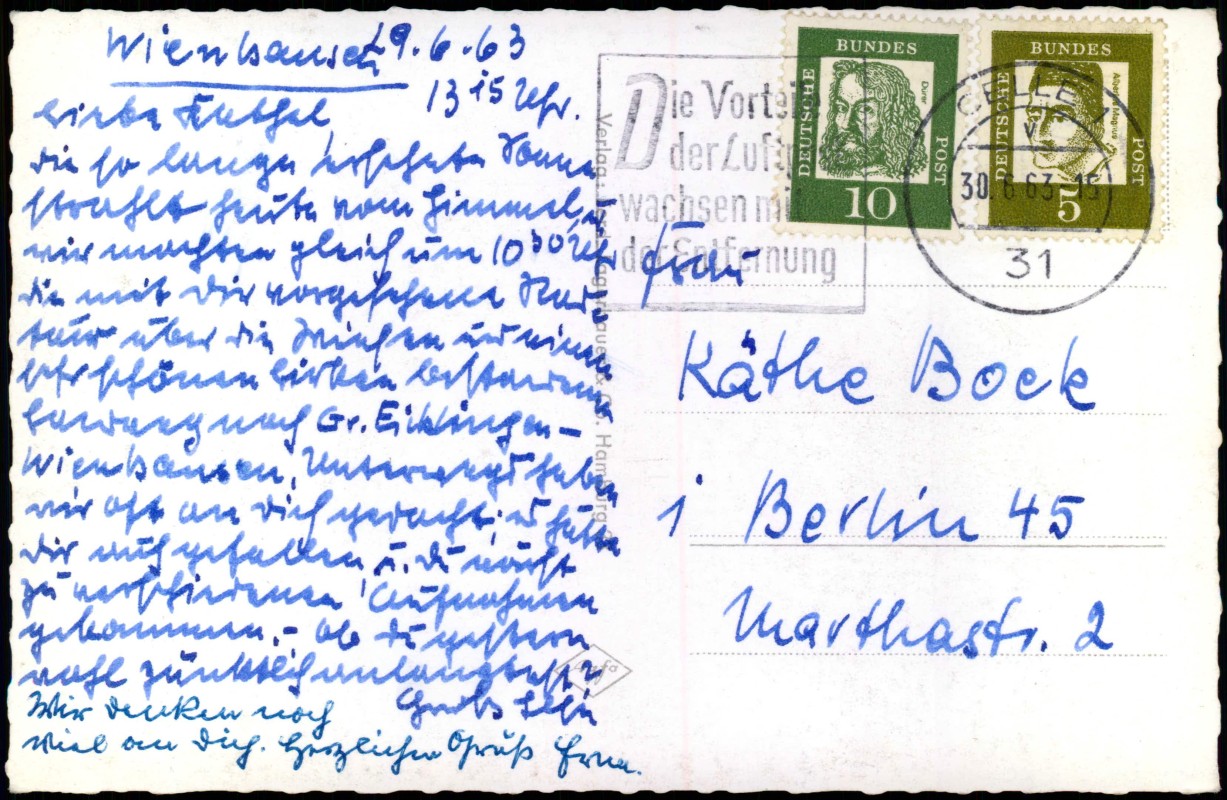 Wienhausen 29.6.63
13 15 Uhr.
Liebe Käthel,
die so lange ersehnte Sonne
strahlt heute vom Himmel, u
wir machten gleich um 10 30 Uhr
die mit Dir vorgesehene Rad-
tour über die Wiesen und einen
sehr schönen Birken bestandenen
nach Gr. Eicklingen-
Wienhausen, Unterwegs haben
wir oft an Dich gedacht; es hätte
Dir auch gefallen u. Du wärst
zu verschiedenen Aufnahmen
gekommen.- Ob Du gestern
wohl pünktlich anlangtest?
Gruß
Wir denken noch
viel an Dich. Herzlichen Gruß Erna.
Verlag
Hamburg
Agfa
Die Vorteile
der Luftpost
wachsen mit
der Entfernung
BUNDES
DEUTSCHE
POST
Dürer
10
BUNDES
DEUTSCHE
POST
Albertus Magnus
5
CELLE 1
30.6.63.-15
31
Frau
Käthe Bock
1 Berlin 45
Marthastr. 2